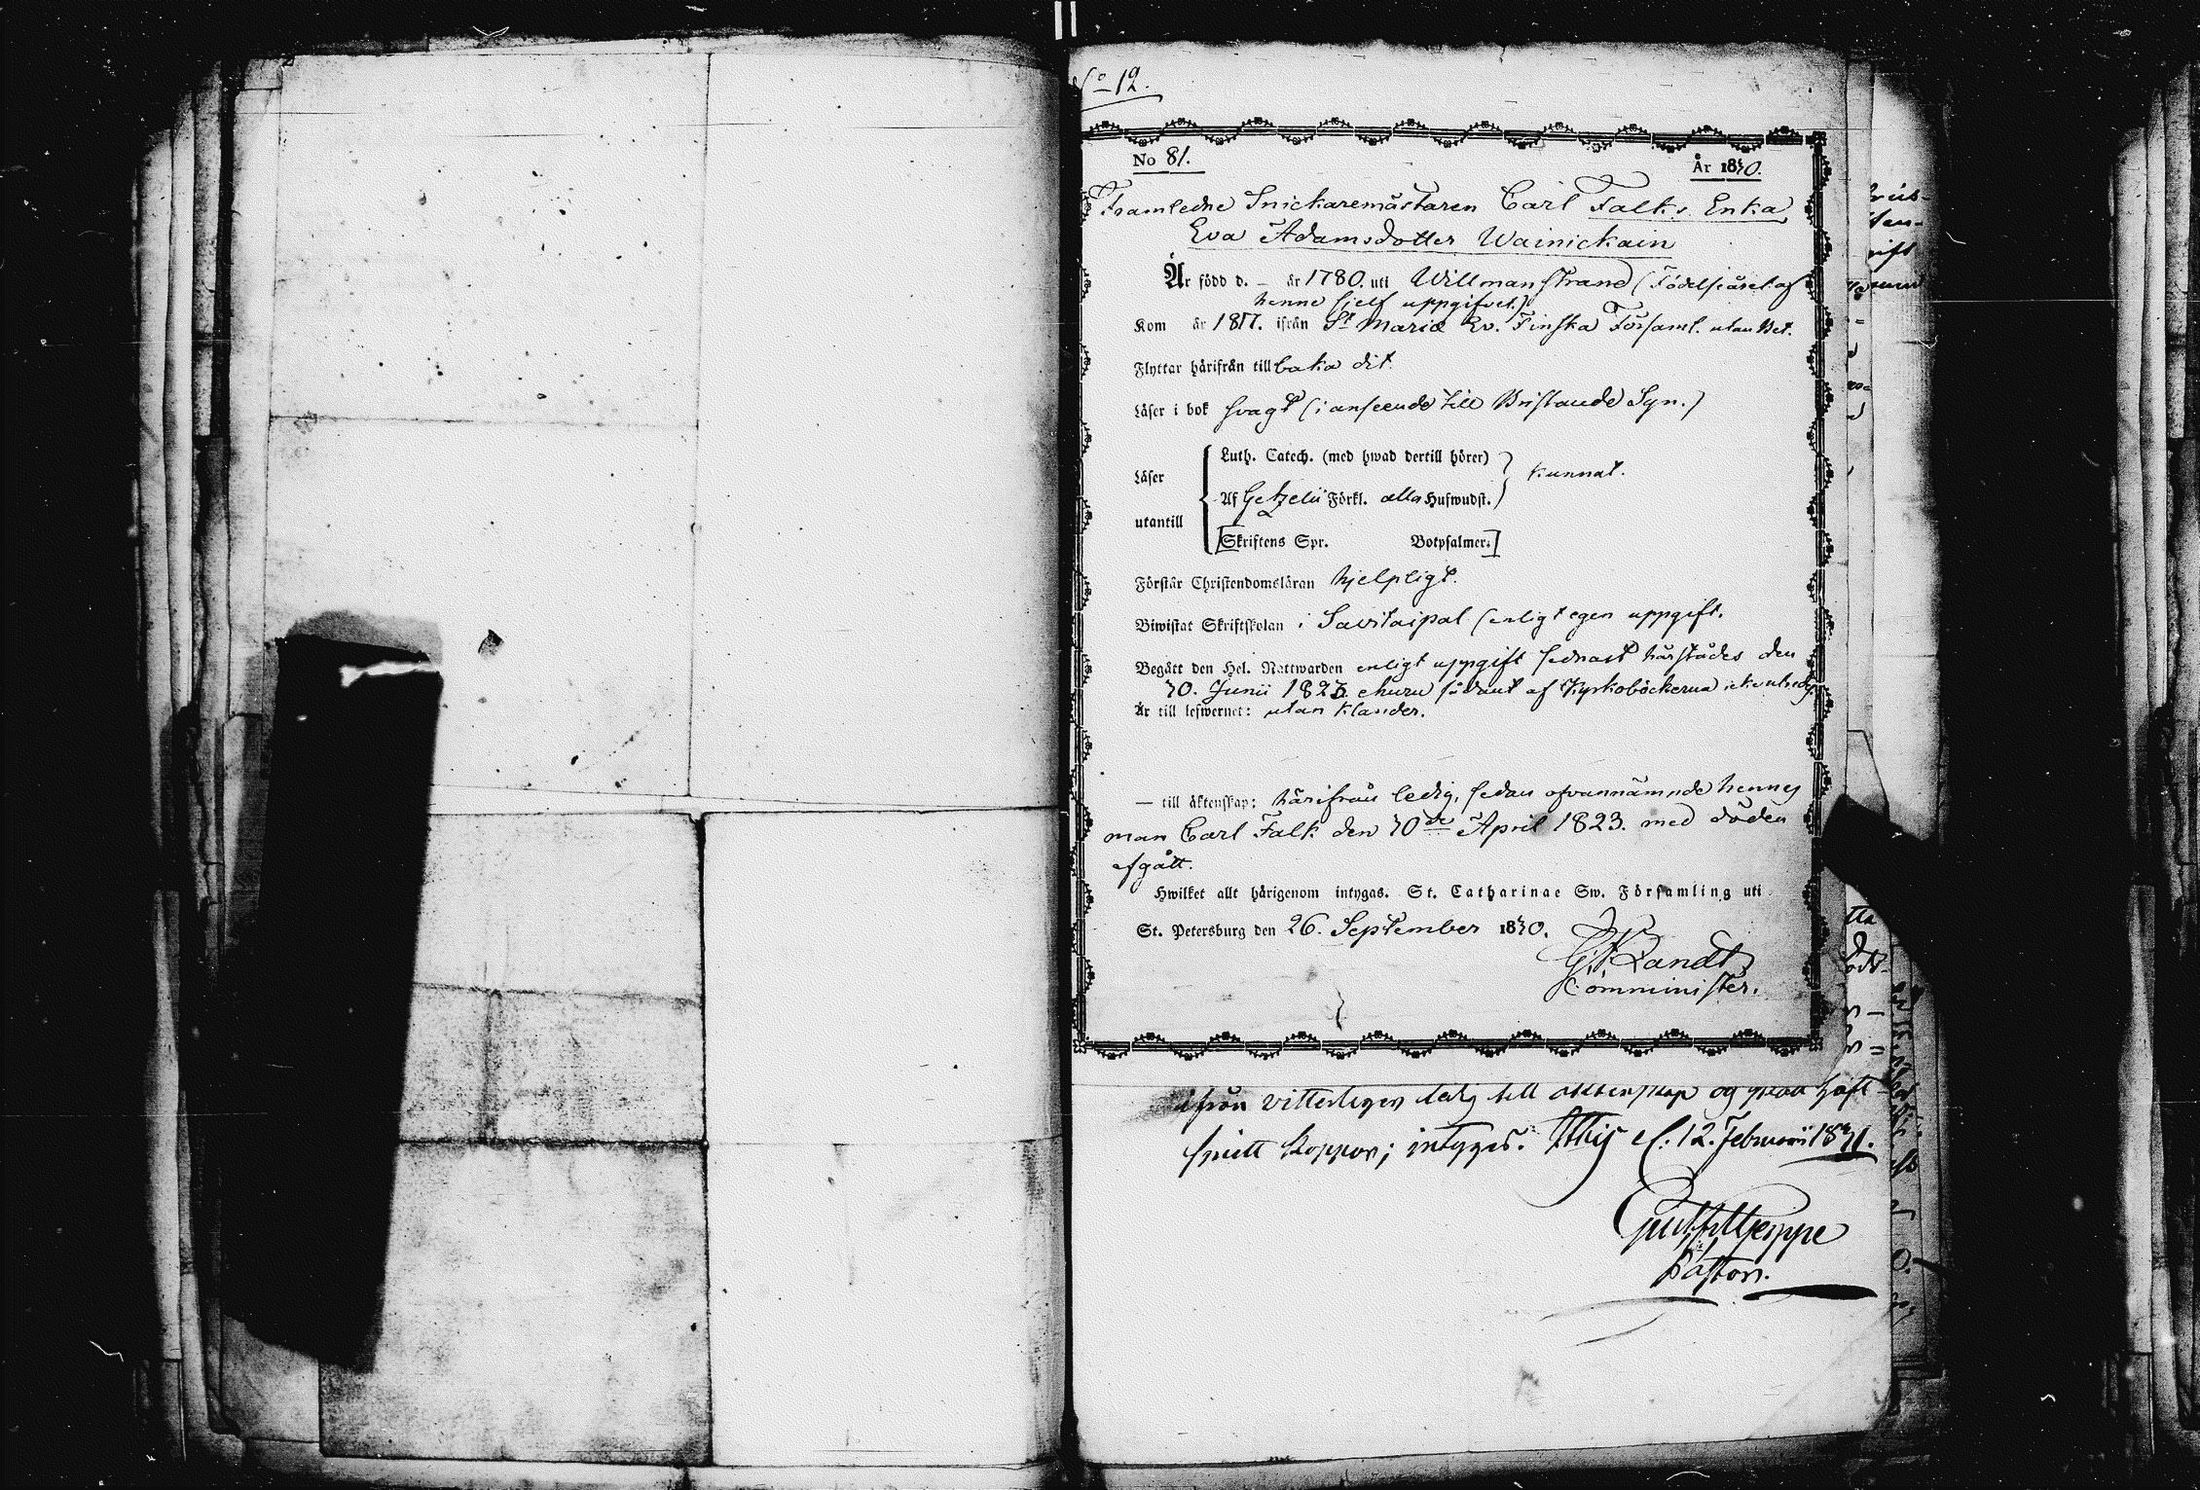 No 12.
No 81. År 1830.
Framledne Snickaremästaren Carl Falks Enka
Eva Adamsdotter Wainickain
Är född d. – år 1780. uti Willmanstrand (Födelseåret af
henne sjelf uppgifvet.)
Kom år 1817. ifrån St Mariæ Ev. Finska Församl. utan Bet.
Flyttar härifrån tillbaka dit.
Läser i bok svagt (i anseende till Bristande Syn.)
Luth. Catech. (med hwad dertill hörer)
Läser
kunnat.
Af Getzelii Förkl. alla Hufwudst.
utantill
[Skriftens Spr. Botpsalmer.]
Förstår Christendomsläran hjelpligt.
Biwistat Skriftskolan i Savitaipal (enligt egen uppgift.
Begått den Hel. Nattwarden enligt uppgift sednast härstädes den
30. Junii 1823. ehuru sådant af Kyrkoböckerna icke
Är till lefwernet: utan klander.
— till äktenskap: härifrån ledig, sedan ofvannämnde hennes
man Carl Falk den 30de April 1823. med döden
afgått.
Hwilket allt härigenom intygas. St. Catharinae Sw. Församling uti
St. Petersburg den 26. September 1830.
Landt
Comminister.
ifrån vitterligen ledig till äktenskap og haft
Koppor; intygas. d. 12. Februarii 1831.
Pastor.